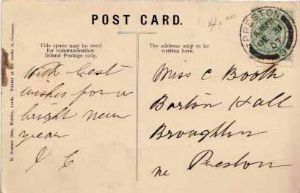 POST CARD.
This space may be used
for communication
Inland Postage only.
The address only to be
written here.
With best
wishes for a
bright new
year
J C
Miss C Booth
Barton Hall
Broughton
nr Preston
PRESTON